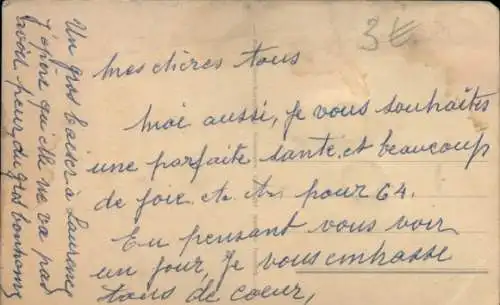 3€
mes chères tous
Moi aussi, je vous souhaites
une parfaite sante, et beaucoup
de joie, etc. etc. pour 64.
En pensant vous voir
un jour, Je vous embrasse
tous de coeur,
Un gros baiser à Laurence
J'èspère qu'elle ne va pas
avoir peur, du gros bonhomme